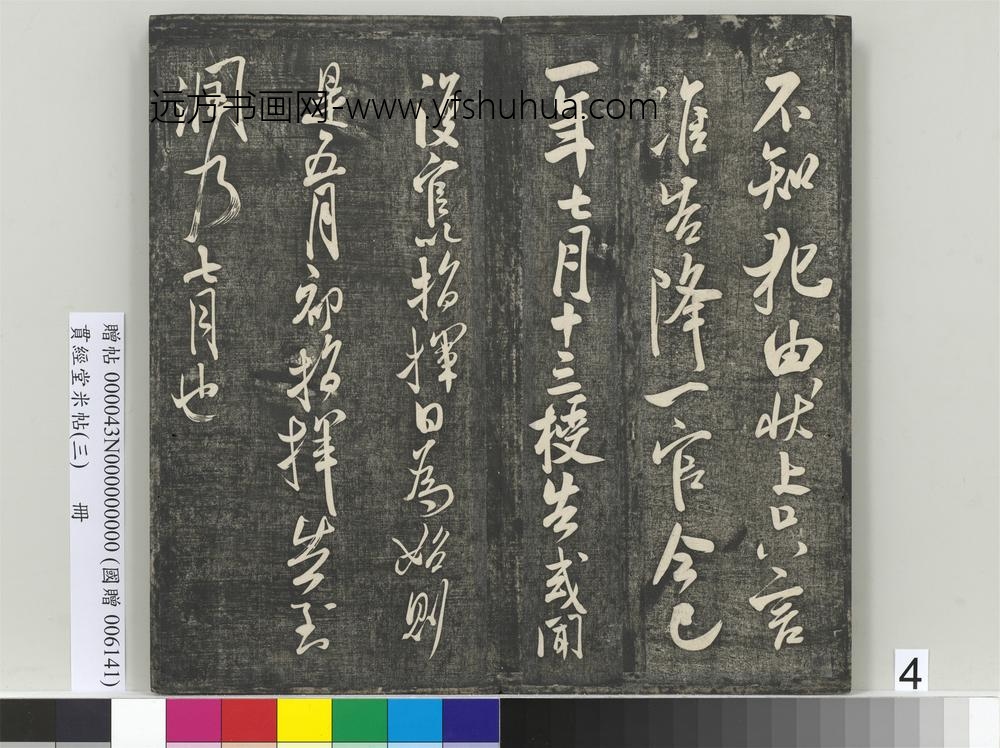 不知犯由狀上只言
准告降一官今已
一年七月十三授告或聞
復官以指揮日為始則
是五月初指揮告到
潤乃七月也
远方书画网-www.yfshuhua.com
贈帖 000043N000000000 (國贈 006141)
貫經堂米帖(三) 冊
4